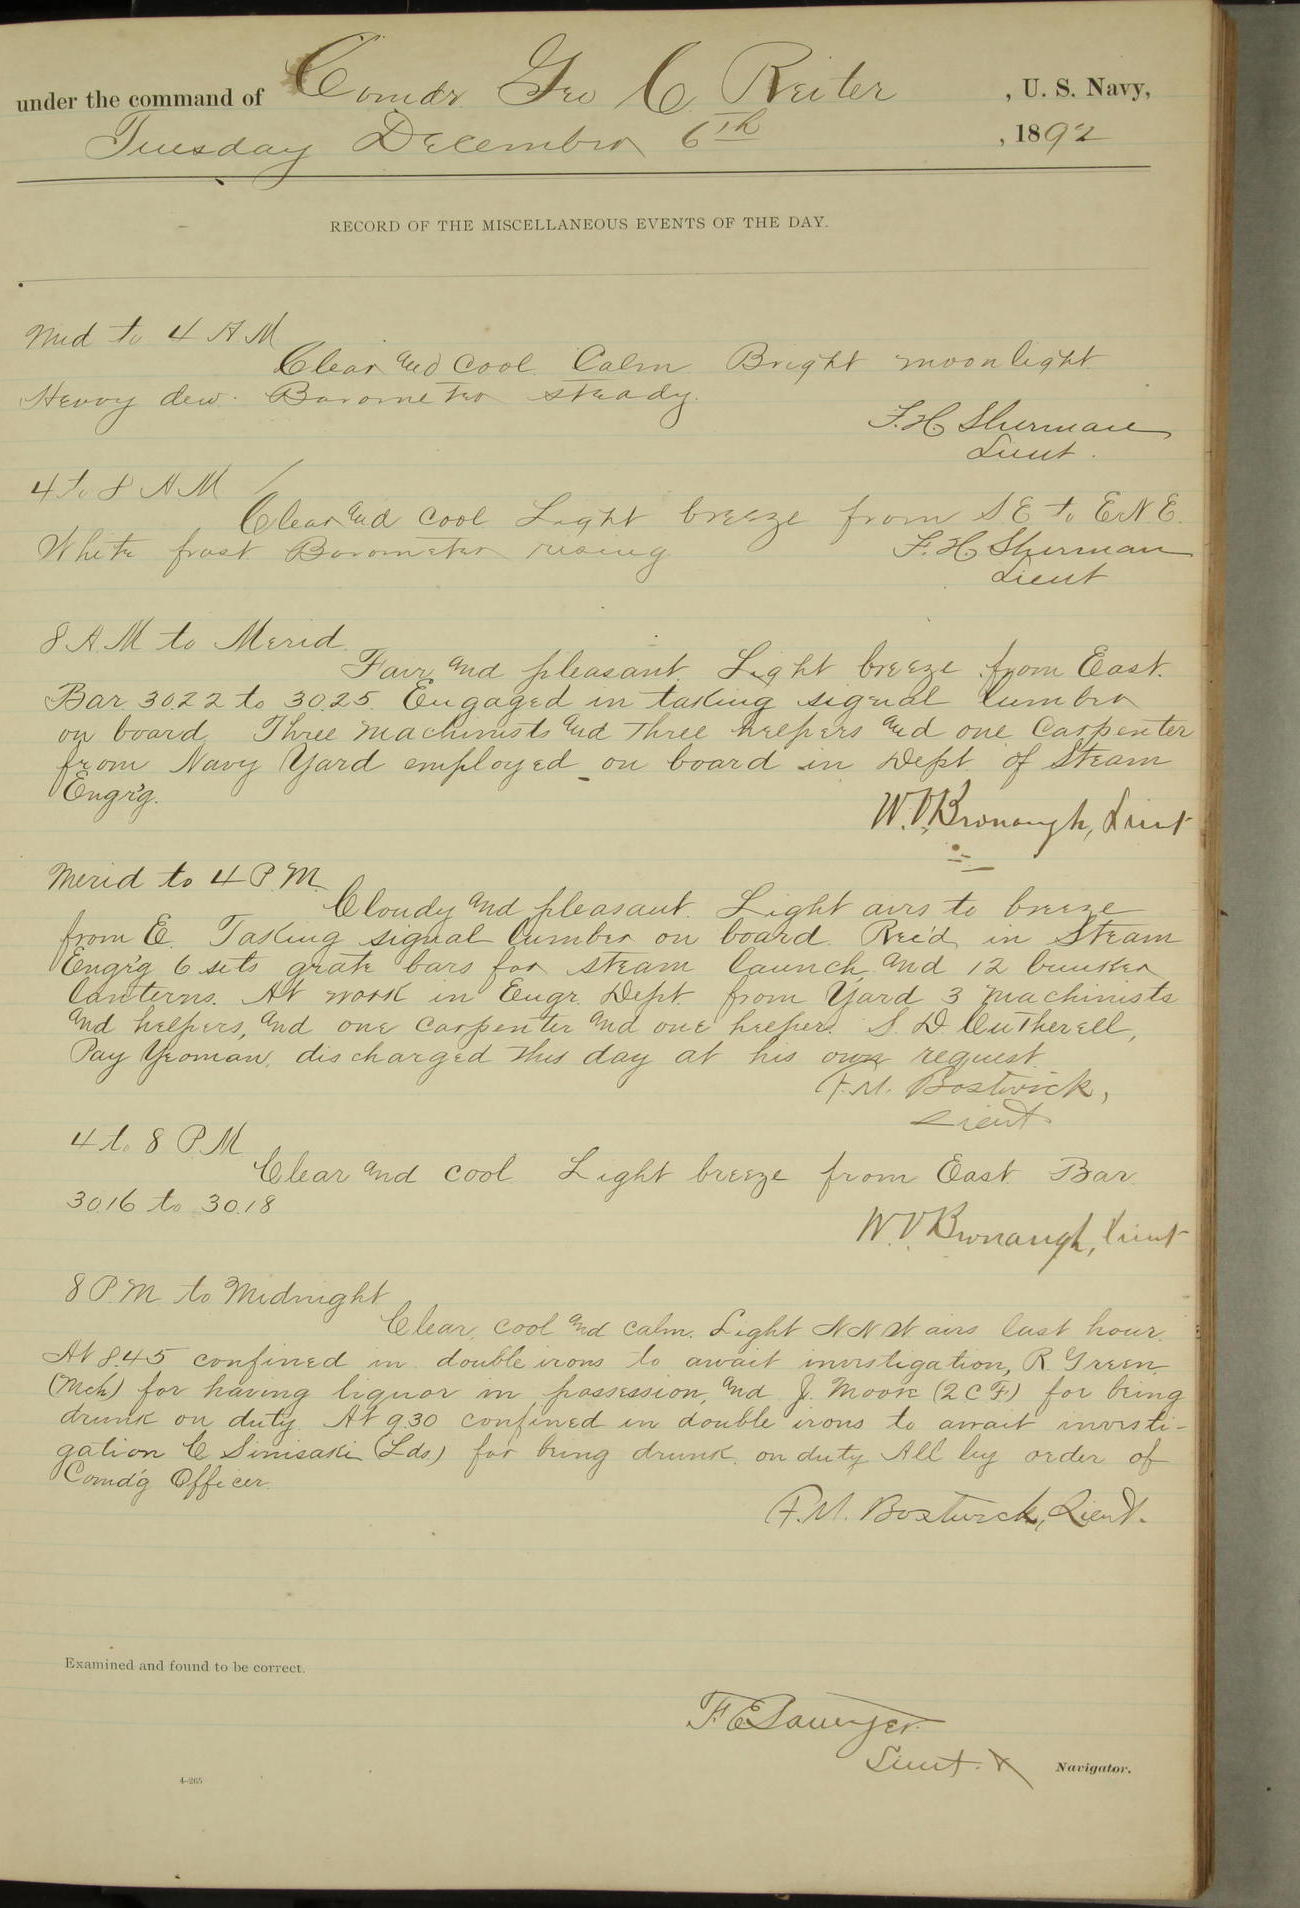 under the command of Comdr. Geo C Reiter, U. S. Navy,
Tuesday December 6th, 1892
RECORD OF THE MISCELLANEOUS EVENTS OF THE DAY.
Mid to 4 A M
Clear and cool. Calm. Bright moonlight.
Heavy dew. Barometer steady.
F. H. Sherman
Lieut.
4 to 8 A M
Clear and cool Light breeze from S E to E N E.
White frost. Barometer rising
F. H. Sherman
Lieut
8 A.M to Merid.
Fair and pleasant. Light breeze from East.
Bar 30.22 to 30.25. Engaged in taking signal lumber
on board. Three machinists and three helpers and one Carpenter
from Navy Yard employed on board in Dept of Steam
Engr'g.
W. V. Bronaugh, Lieut
Merid to 4 P.M.
Cloudy and pleasant. Light airs to breeze
from E. Taking signal lumber on board. Rec'd in Steam
Engr'g 6 sets grate bars for steam launch, and 12 bunker
lanterns. At work in Engr. Dept from Yard 3 machinists
and helpers, and one carpenter and one helper. S. D. Cutherell,
Pay Yeoman, discharged this day at his own request.
F. M. Bostwick,
Lieut
4 to 8 P M
Clear and cool Light breeze from East. Bar.
30.16 to 30.18
W. V. Bronaugh, Lieut
8 P.M. to Midnight
Clear, cool and calm. Light N N W airs last hour.
At 8.45 confined in double irons to await investigation, R. Green
(Mch) for having liquor in possession, and J. Moore (2 C F.) for being
drunk on duty. At 9.30 confined in double irons to await investi-
gation C Sinisaki (Lds) for being drunk on duty All by order of
Comd'g Officer.
F. M. Bostwick, Lieut.
Examined and found to be correct.
F. E. Sawyer.
Lieut. & Navigator.
4—265